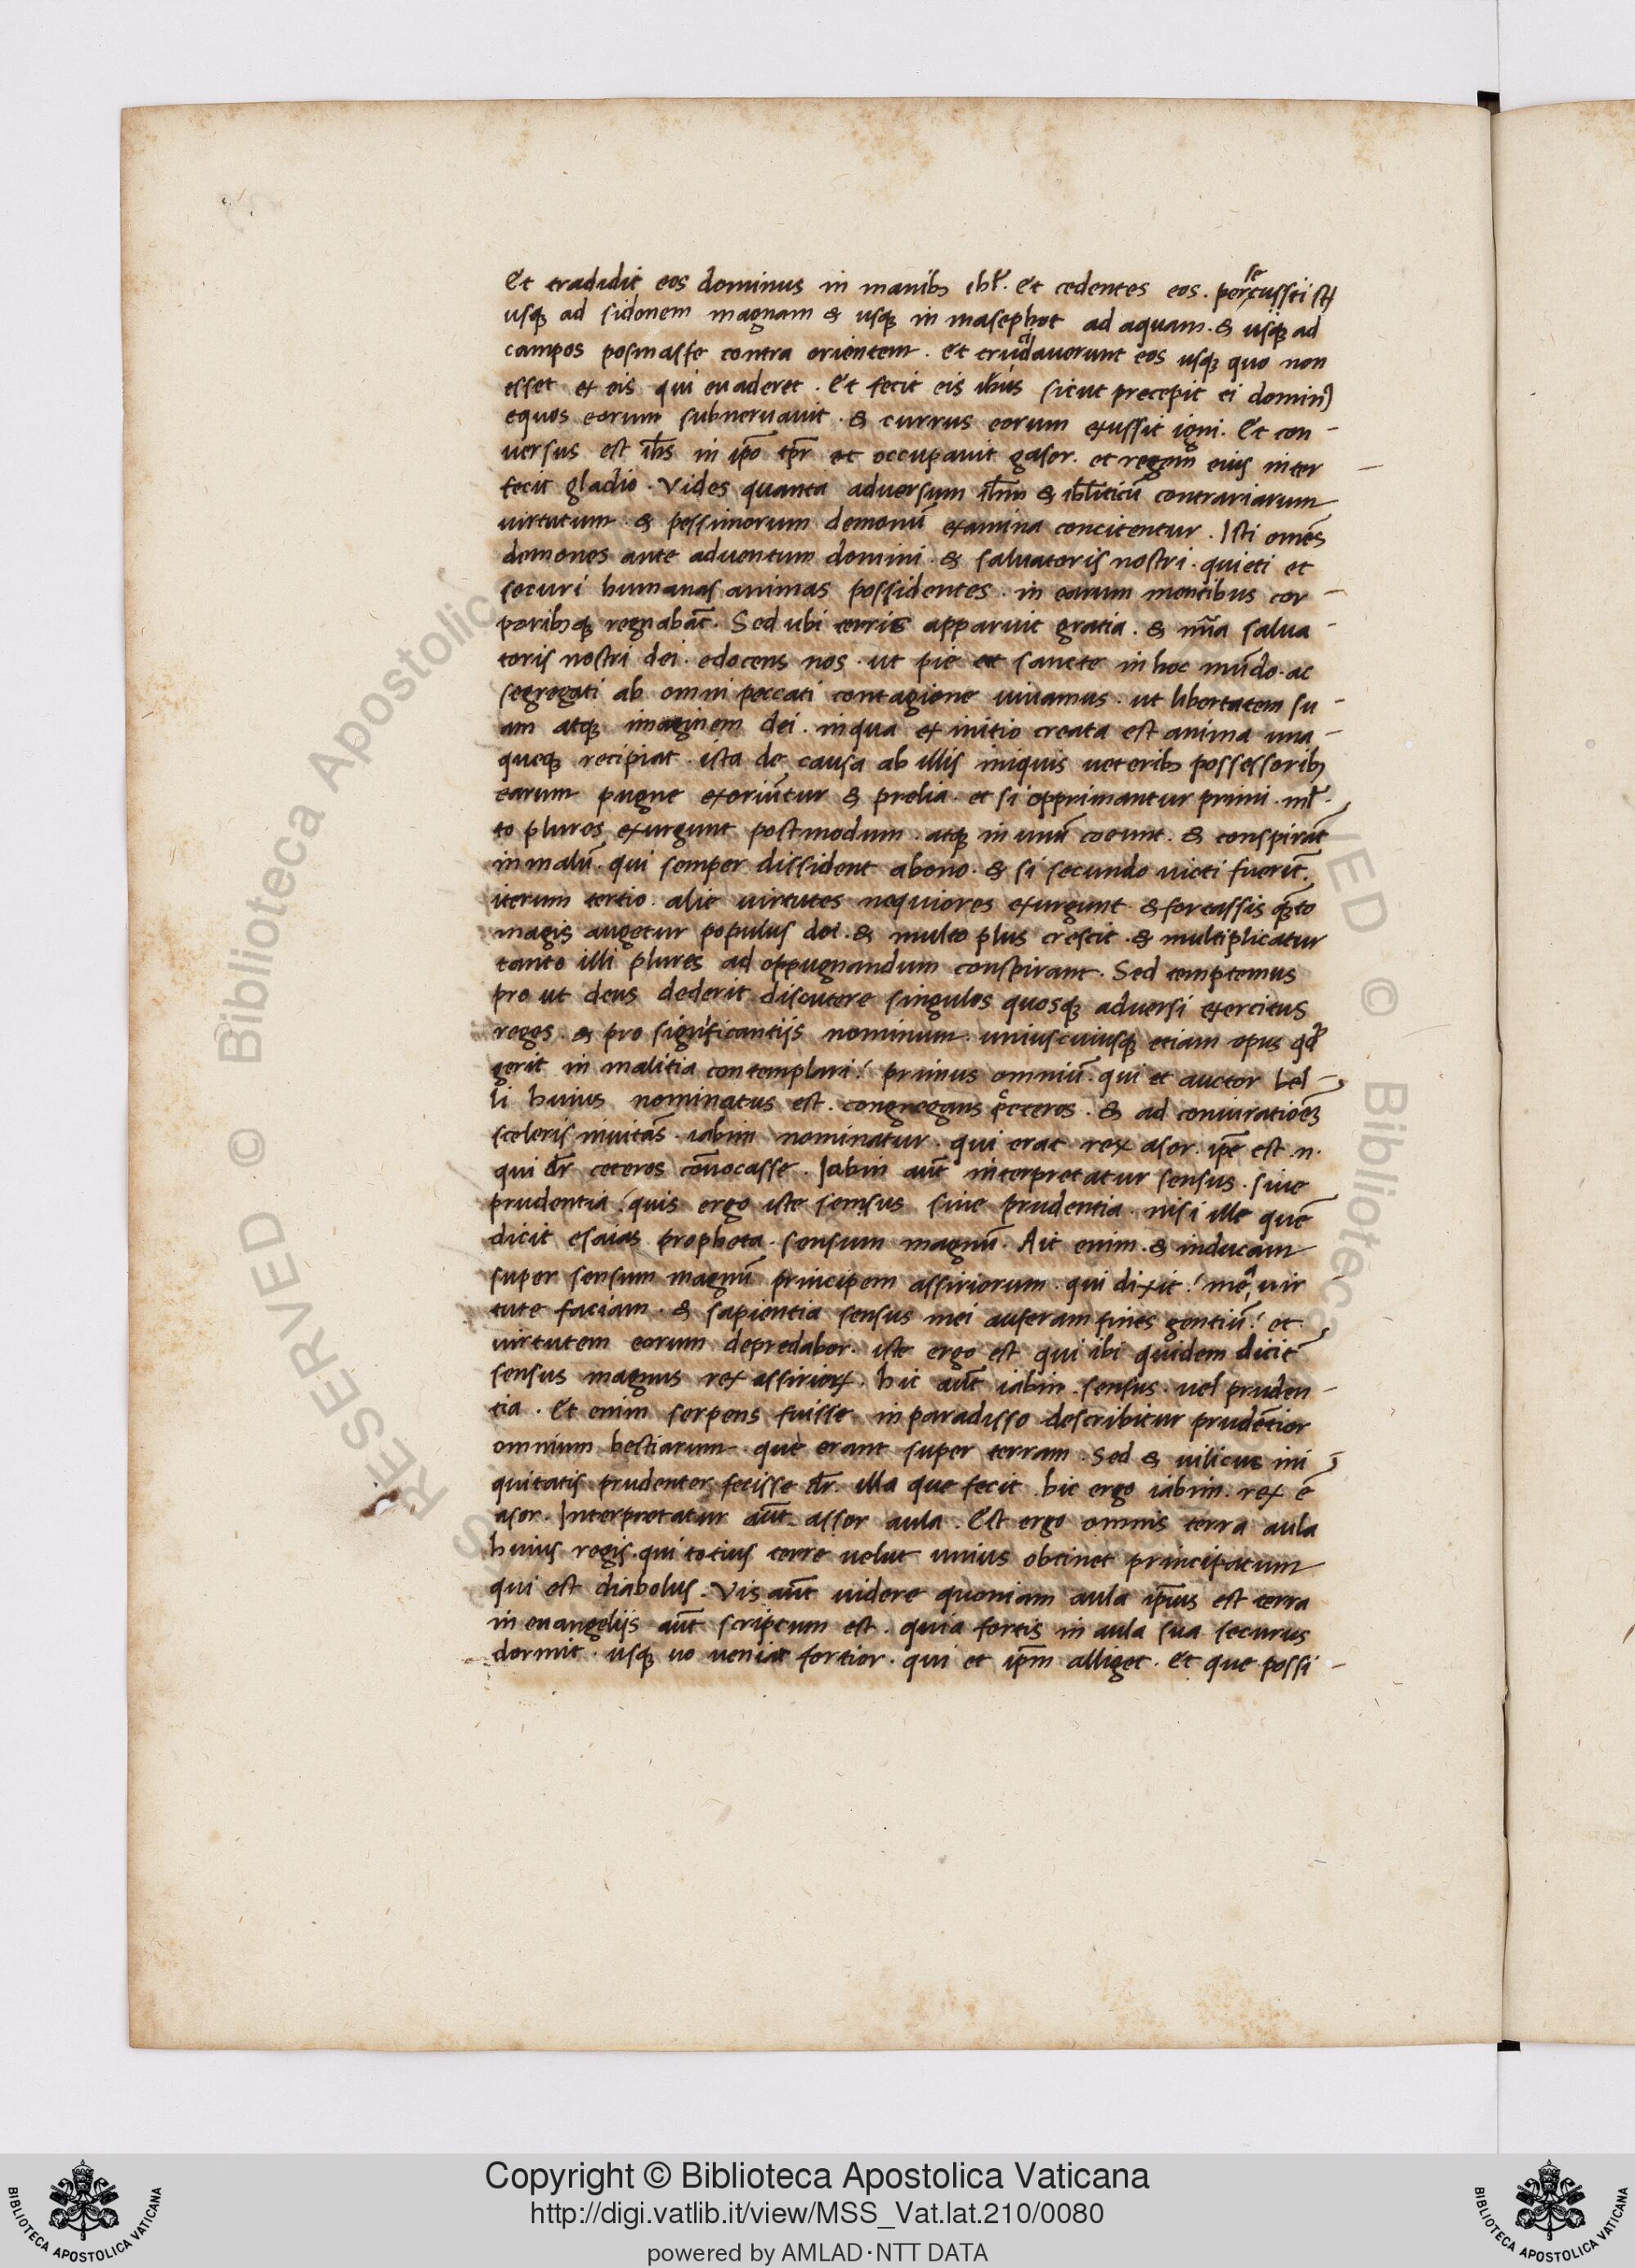 Et tradidit eos dominus in manibꝫ ihl̄. Et cedentes eos. percussti st
se
usqꝫ ad sidonem magnam & usqꝫ in masephot ad aquam. & usqꝫ ad
campos posmasse contra orientem. et trudauerunt eos usqꝫ quo non
ci
esset ex eis qui euaderet. Et fecit eis ih̄us sicut precepit ei dominꝰ
equos eorum subneruauit. & currus eorum exussit igni. Et con-
uersus est ih̄s in ip̄o tp̄r et occupauit gasor. et regem eius inter-
fecit gladio. Vides quanta aduersum ihl̄m & ihl̄iticū contrariarum
uirtutum & pessimorum demonū examina concitentur. Isti omēs
demones ante aduentum domini & saluatoris nostri. quieti et
securi humanas animas possidentes. in earum mentibus cor-
poribꝫqꝫ regnabāt. Sed ubi terris apparuit gratia. & mīa salua-
toris nostri dei. edocens nos. ut pie et sancte in hoc mūdo. ac
segregati ab omni peccati contagione uiuamus. ut libertatem su-
am atqꝫ imaginem dei. in qua ex initio creata est anima una-
queqꝫ recipiat. ista de causa ab illis iniquis ueteribꝫ possessoribꝫ
earum pugne exoriūtur & prelia. et si opprimantur primi. ml̄-
to plures exurgunt postmodum. atqꝫ in unū coeunt. & conspirāt
in malū. qui semper dissident abono. & si secundo uicti fuerīt.
iterum tertio. alie uirtutes nequiores exurgunt. & fortassis quāto
magis augetur populus dei. & multo plus crescit. & multiplicatur
tanto illi plures ad oppugnandum conspirant. Sed temptemus
pro ut deus dederit discutere singulos quosqꝫ aduersi exercitus
reges. & pro significantijs nominum. uniuscuiusqꝫ etiam opus qd̄
gerit in malitia contemplari! primus omniū. qui et auctor bel-
li huius nominatus est. congregans cęteros. & ad coniuratiōeꝫ
sceleris inuitās. iabin nominatur. qui erat rex asor. ip̄e est .n.
qui dr̄ ceteros cōuocasse. Iabin aūt interpretatur sensus. siue
prudentia! quis ergo iste sensus siue prudentia. nisi ille quē
dicit esaias propheta. sensum magnū. Ait enim. & inducam
super sensum magnū principem assiriorum. qui dixit! mea uir
tute faciam. & sapientia sensus mei auferam fines gentiū! et
uirtutem eorum depredabor. iste ergo est qui ibi quidem dicit̄
sensus magnus rex assirioꝝ. hic aūt iabin. sensus. uel pruden-
tia. Et enim serpens fuisse in paradisso describitur prudētior
omnium bestiarum que erant super terram. Sed & uilicus ini
quitatis prudenter fecisse dr̄. illa que fecit. hic ergo iabin. rex ē
asor. Interpretatur aūt assor aula. Est ergo omnis terra aula
huius regis. qui totius terre uelut unius obtinet principatum
qui est diabolus. Vis aūt uidere quoniam aula ip̄ius est terra
in euangelijs aūt scriptum est. quia fortis in aula sua securus
dormit. usqꝫ uo ueniat fortior. qui et ip̄m alliget. Et que possi-
RESERVED © Biblioteca Apostolica
Copyright © Biblioteca Apostolica Vaticana
http://digi.vatlib.it/view/MSS_Vat.lat.210/0080
powered by AMLAD·NTT DATA
BIBLIOTECA APOSTOLICA VATICANA
BIBLIOTECA APOSTOLICA VATICANA